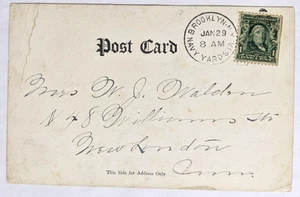 BROOKLYN, N.Y.
JAN 29
8 AM
NAVY YARD STA.
Post Card
Mrs W. J. Walden
48 Williams St
New London
Conn.
This Side for Address Only